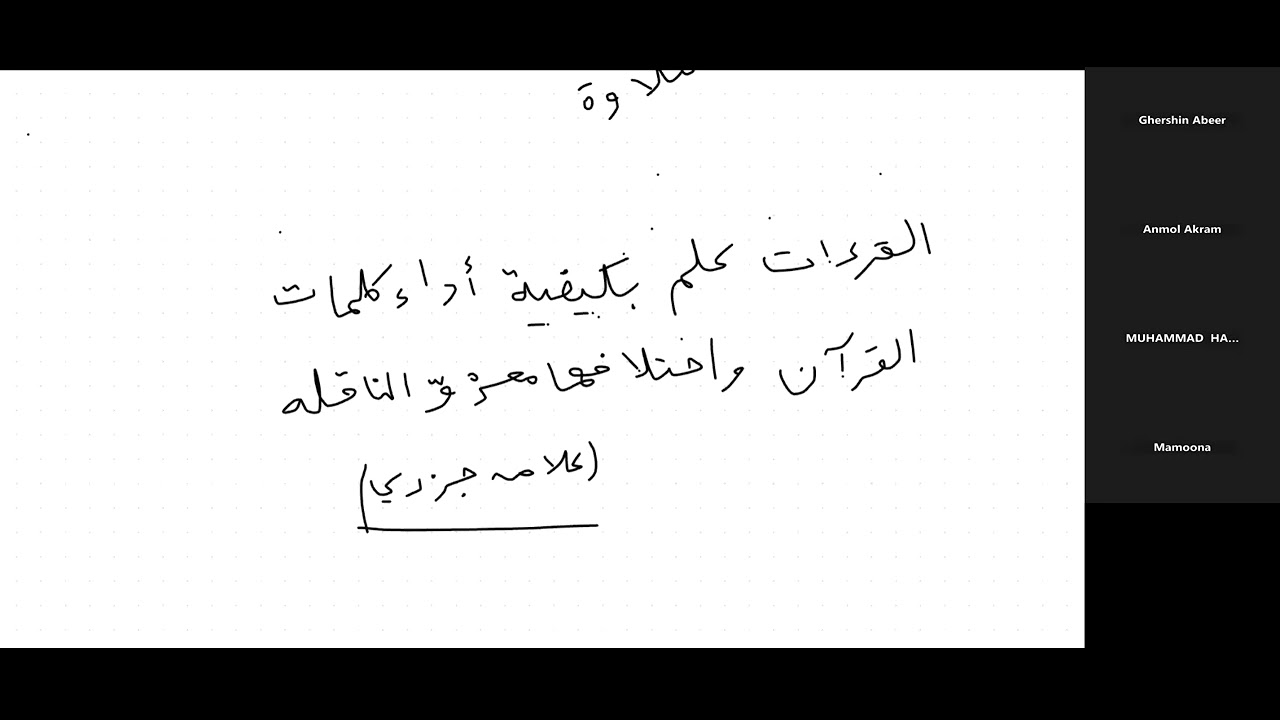 تلاوة
القرءات علم بكيفية أداء كلمات
القرآن واختلافها معزوّ الناقله
(علامه جزري)
Ghershin Abeer
Anmol Akram
MUHAMMAD HA...
Mamoona